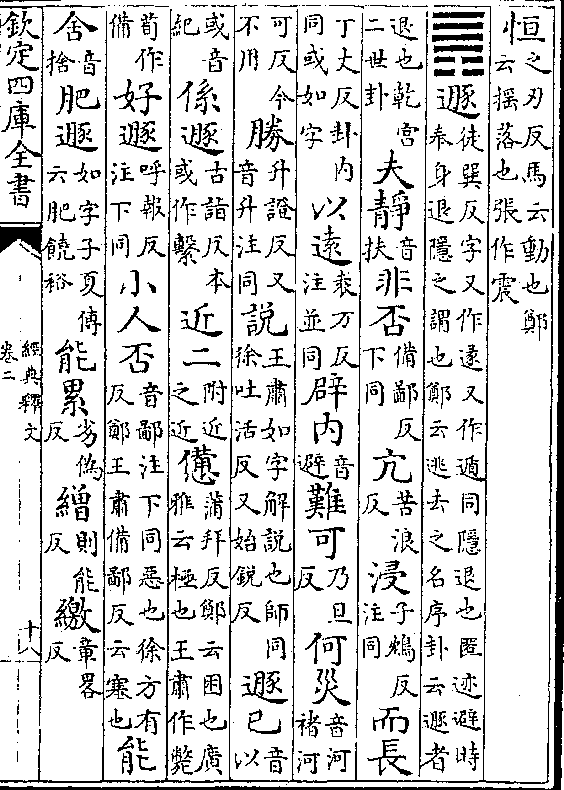 恒之刃反馬云動也鄭云揺落也張作震
䷠遯徒巽反字又作遂又作遁同隱退也匿迹避時奉身退隱之謂也鄭云逃去之名序卦云遯者
退也乾宮二世卦夫靜音扶非否備鄙反下同亢苦浪反浸子鴆反注同而長
丁丈反卦内同或如字以遠袁万反注並同辟内音避難可乃旦反何災音河禇河
可反今不用勝升證反又音升注同說王肅如字解說也師同徐吐活反又始銳反遯已音以
或音紀係遯古詣反本或作繫近二附近之近憊蒲拜反鄭云困也廣雅云極也王肅作斃
荀作備好遯呼報反注下同小人否音鄙注下同惡也徐方有反鄭王肅備鄙反云塞也能
舍音捨肥遯如字子夏傳云肥饒裕能累劣偽反繒則能反繳章畧反
欽定四庫全書
經典釋文
卷二
十八